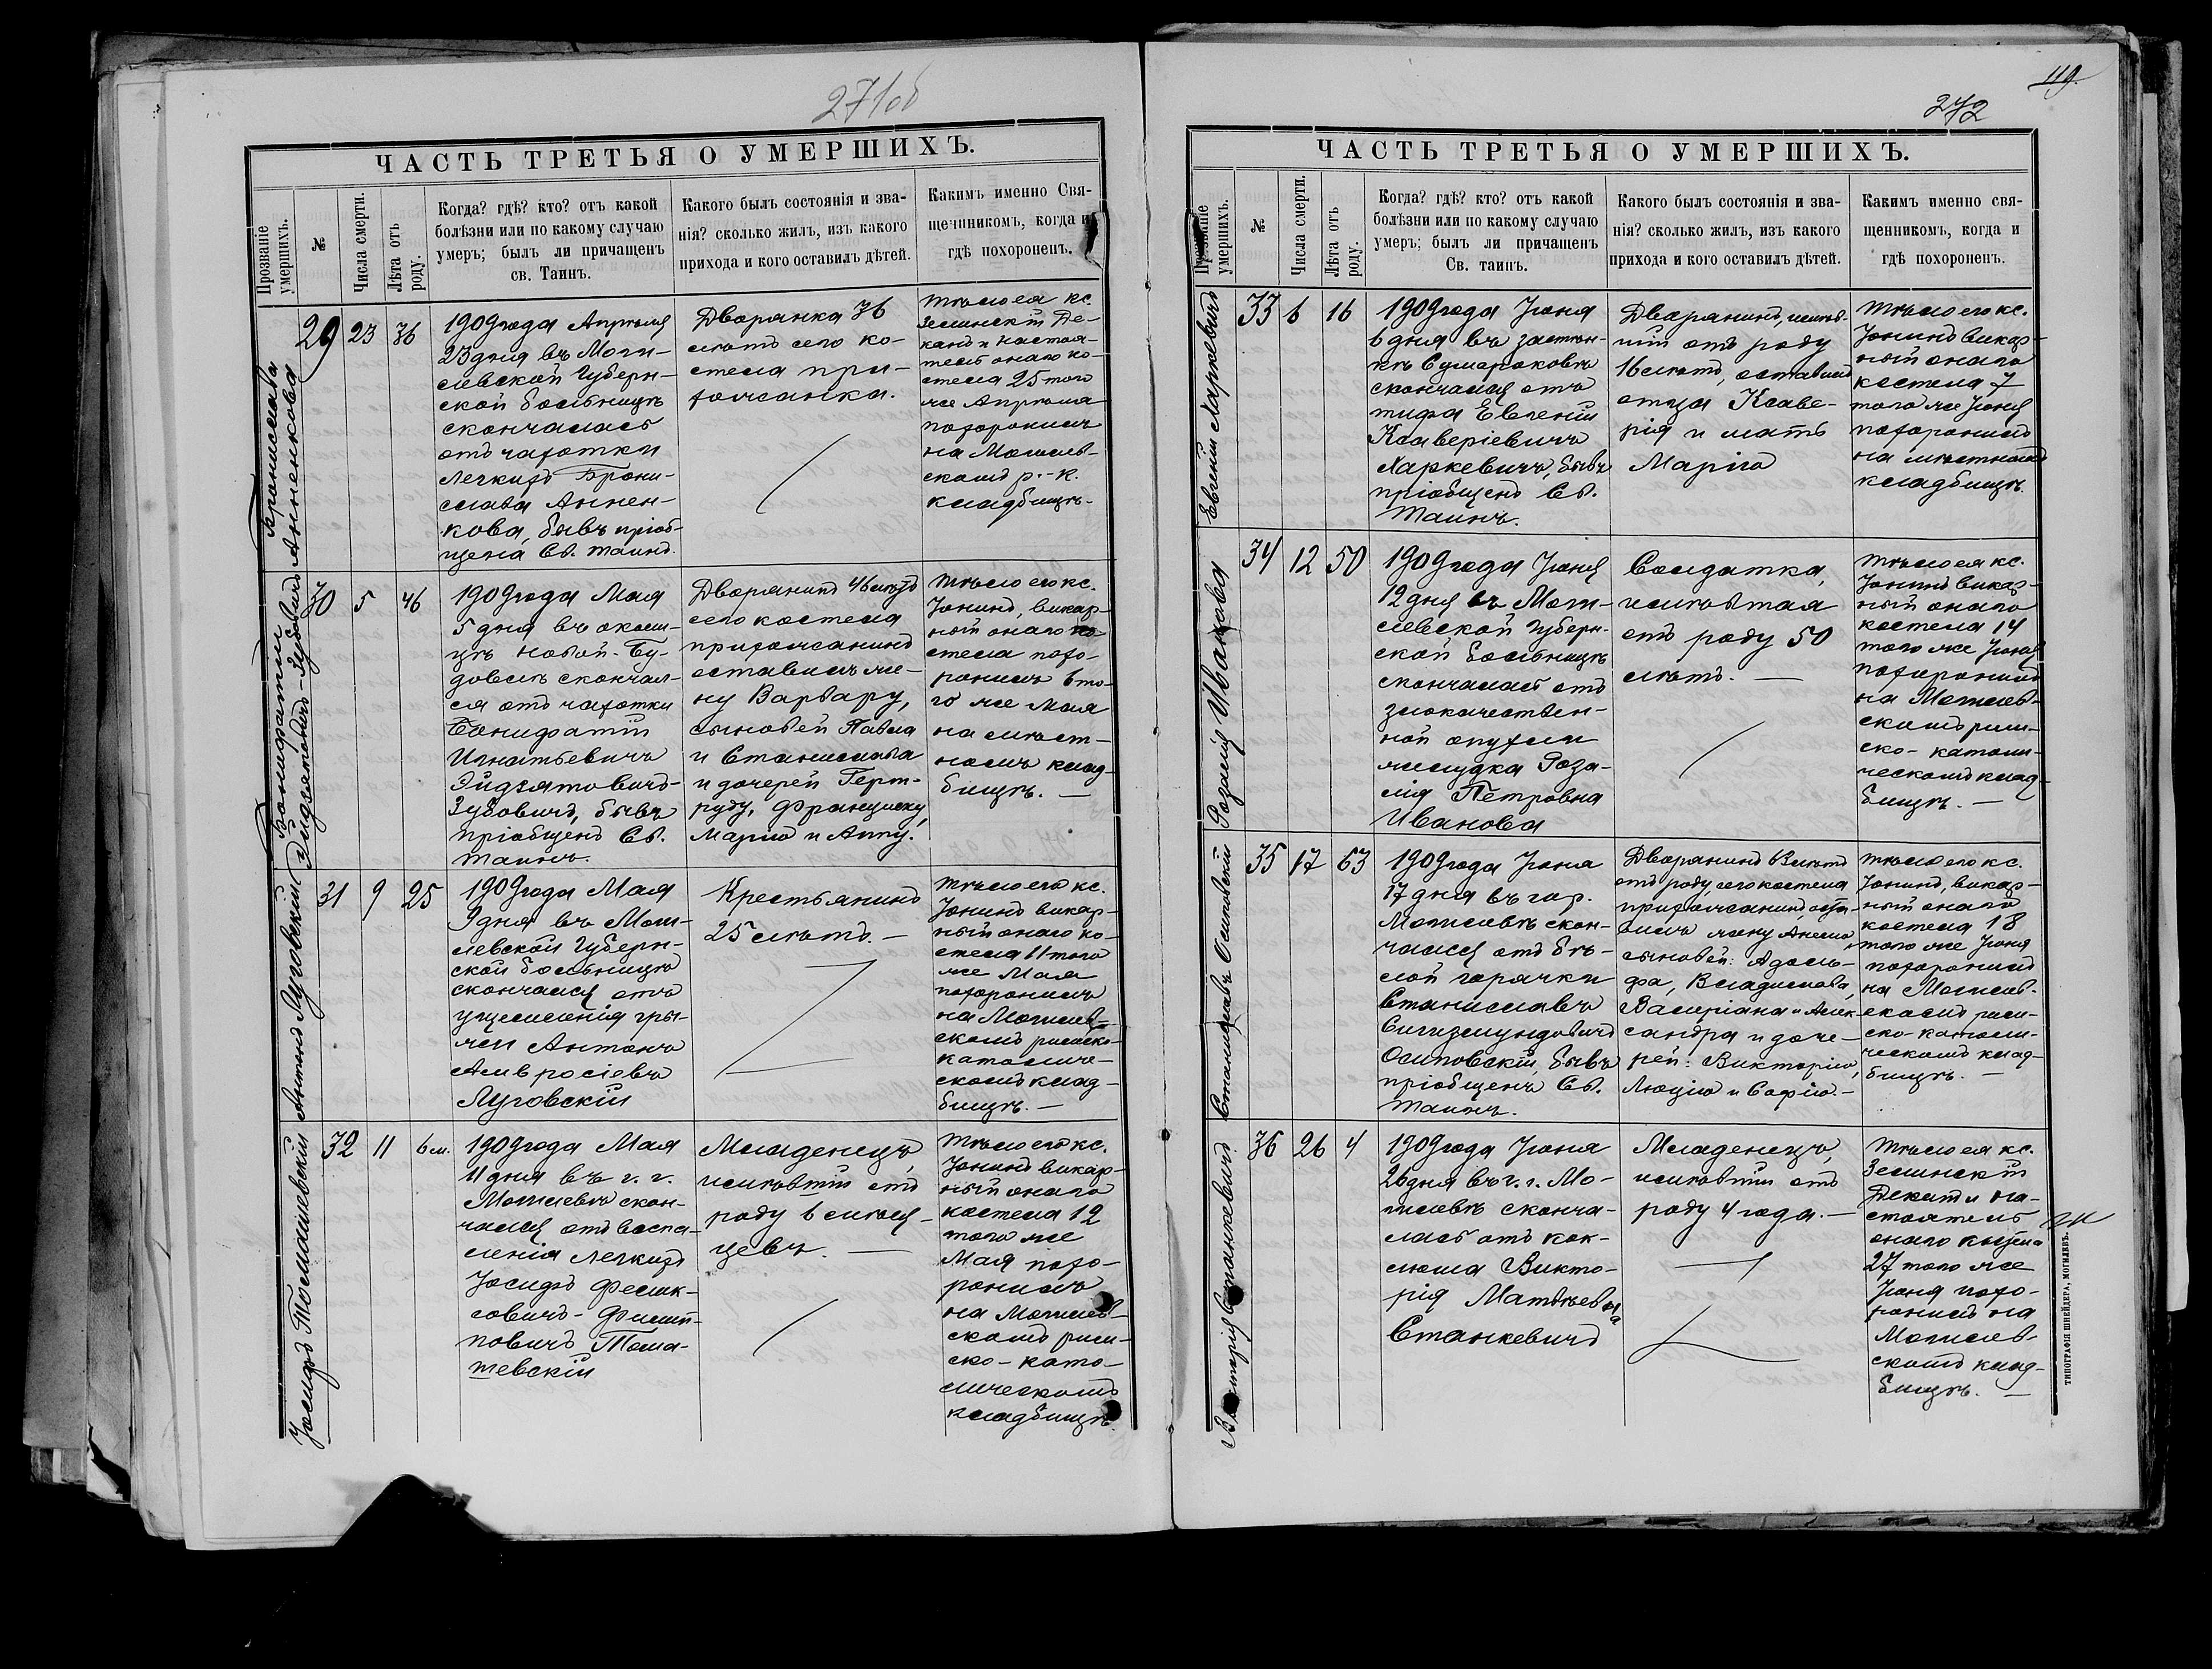 271об
ЧАСТЬ ТРЕТЬЯ О УМЕРШИХЪ.
Прозваніе умершихъ.
№
Числа смерти.
Лѣта отъ роду.
Когда? гдѣ? кто? отъ какой
болѣзни или по какому случаю
умеръ; былъ ли причащенъ
св. Таинъ.
Какого былъ состоянія и зва-
нія? сколько жилъ, изъ какого
прихода и кого оставилъ дѣтей.
Какимъ именно Свя-
щенникомъ, когда и
гдѣ похороненъ.
Бронислава
Анненкова
29
23
36
1909 года Апрѣля
23 дня въ Моги-
левской Губерн-
ской больницѣ
скончалась
отъ чахотки
легкихъ Брони-
слава Аннен-
кова, бывъ пріоб-
щена Св. Таинъ.
Дворянка 36
лѣтъ сего ко-
стела при-
хожанка.
Тѣло ея кс.
Зелинскій Де-
канъ и Настоя-
тель онаго ко-
стела 25 того
же Апрѣля
похоронилъ
на Могилев-
скомъ р.-к.
кладбищѣ.
Бонифатій
Эйдзятовичъ-Зубовичъ
30
5
46
1909 года Мая
5 дня въ околи-
цѣ Новой-Бу-
довлѣ скончал-
ся отъ чахотки
Бонифатій
Игнатьевичъ
Эйдзятовичъ-
Зубовичъ, бывъ
пріобщенъ Св.
Таинъ.
Дворянинъ 46 лѣтъ
сего костела
прихожанинъ
оставилъ же-
ну Варвару,
сыновей Павла
и Станислава
и дочерей Герт-
руду, Францишку,
Марію и Анну.
Тѣло его кс.
Іонинъ, викар-
ный онаго ко-
стела похо-
ронилъ 6 то-
го же Мая
на мѣст-
номъ клад-
бищѣ. —
Антонъ Луговскій
31
9
25
1909 года Мая
9 дня въ Моги-
левской Губерн-
ской больницѣ
скончался отъ
ущемленія гры-
жи Антонъ
Амвросіевъ
Луговскій
Крестьянинъ
25 лѣтъ. —
Тѣло его кс.
Іонинъ викар-
ный онаго ко-
стела 11 того
же Мая
похоронилъ
на Могилев-
скомъ римско-
католиче-
скомъ клад-
бищѣ. —
Іосифъ Томашевскій
32
11
6 м.
1909 года Мая
11 дня въ г. г.
Могилевѣ скон-
чался отъ воспа-
ленія легкихъ
Іосифъ Феликс-
совичъ-Филип-
повичъ Тома-
шевскій
Младенецъ,
жившій отъ
роду 6 мѣся-
цевъ. —
Тѣло его кс.
Іонинъ викар-
ный онаго
костела 12
того же
Мая похо-
ронилъ
на Могилев-
скомъ рим-
ско-като-
лическомъ
кладбищѣ.
119.
272
ЧАСТЬ ТРЕТЬЯ О УМЕРШИХЪ.
Прозваніе умершихъ.
№
Числа смерти.
Лѣта отъ роду.
Когда? гдѣ? кто? отъ какой
болѣзни или по какому случаю
умеръ; былъ ли причащенъ
Св. таинъ.
Какого былъ состоянія и зва-
нія? сколько жилъ, изъ какого
прихода и кого оставилъ дѣтей.
Какимъ именно свя-
щенникомъ, когда и
гдѣ похороненъ.
Евгеній Харкевичъ
33
6
16
1909 года Іюня
6 дня въ застѣн-
кѣ Сумароковѣ
скончался отъ
тифа Евгеній
Ксаверіевичъ
Харкевичъ, бывъ
пріобщенъ Св.
Таинъ.
Дворянинъ,
шій отъ роду
16 лѣтъ, оставилъ
отца Ксаве-
рія и мать
Марію
Тѣло его кс.
Іонинъ викар-
ный онаго
костела 7
того же Іюня
похоронилъ
на мѣстномъ
кладбищѣ.
Розалія Иванова
34
12
50
1909 года Іюня
12 дня въ Моги-
левской Губерн-
ской больницѣ
скончалась отъ
злокачествен-
ной опухоли
желудка Роза-
лія Петровна
Иванова
Солдатка,
жившая
отъ роду 50
лѣтъ. —
Тѣло ея кс.
Іонинъ викар-
ный онаго
костела 14
того же Іюня
похоронилъ
на Могилев-
скомъ рим-
ско-католи-
ческомъ клад-
бищѣ. —
Станиславъ Осиповскій
35
17
63
1909 года Іюня
17 дня въ гор.
Могилевѣ скон-
чался отъ бѣ-
лой горячки
Станиславъ
Сигизмундовичъ
Осиповскій, бывъ
пріобщенъ Св.
Таинъ.
Дворянинъ 63 лѣтъ
отъ роду, сего костела
прихожанинъ, оста-
вилъ жену Анелю,
сыновей: Адоль-
фа, Владислава,
Валеріана и Алек-
сандра и доче-
рей: Викторію,
Люцію и Софію. —
Тѣло его кс.
Іонинъ, викар-
ный онаго
костела 18
того же Іюня
похоронилъ
на Могилев-
скомъ рим-
ско-католи-
ческомъ клад-
бищѣ. —
Викторія Станкевичъ
36
26
4
1909 года Іюня
26 дня въ г. г. Мо-
гилевѣ сконча-
лась отъ кок-
люша Викто-
рія Матвѣевна
Станкевичъ
Младенецъ,
жившій отъ
роду 4 года. —
Тѣло ея кс.
Зелинскій
Деканъ и На-
стоятель
онаго костела
27 того же
Іюня похо-
ронилъ на
Могилев-
скомъ клад-
бищѣ. —
ТИПОГРАФІЯ ШНЕЙДЕРА, МОГИЛЕВЪ.